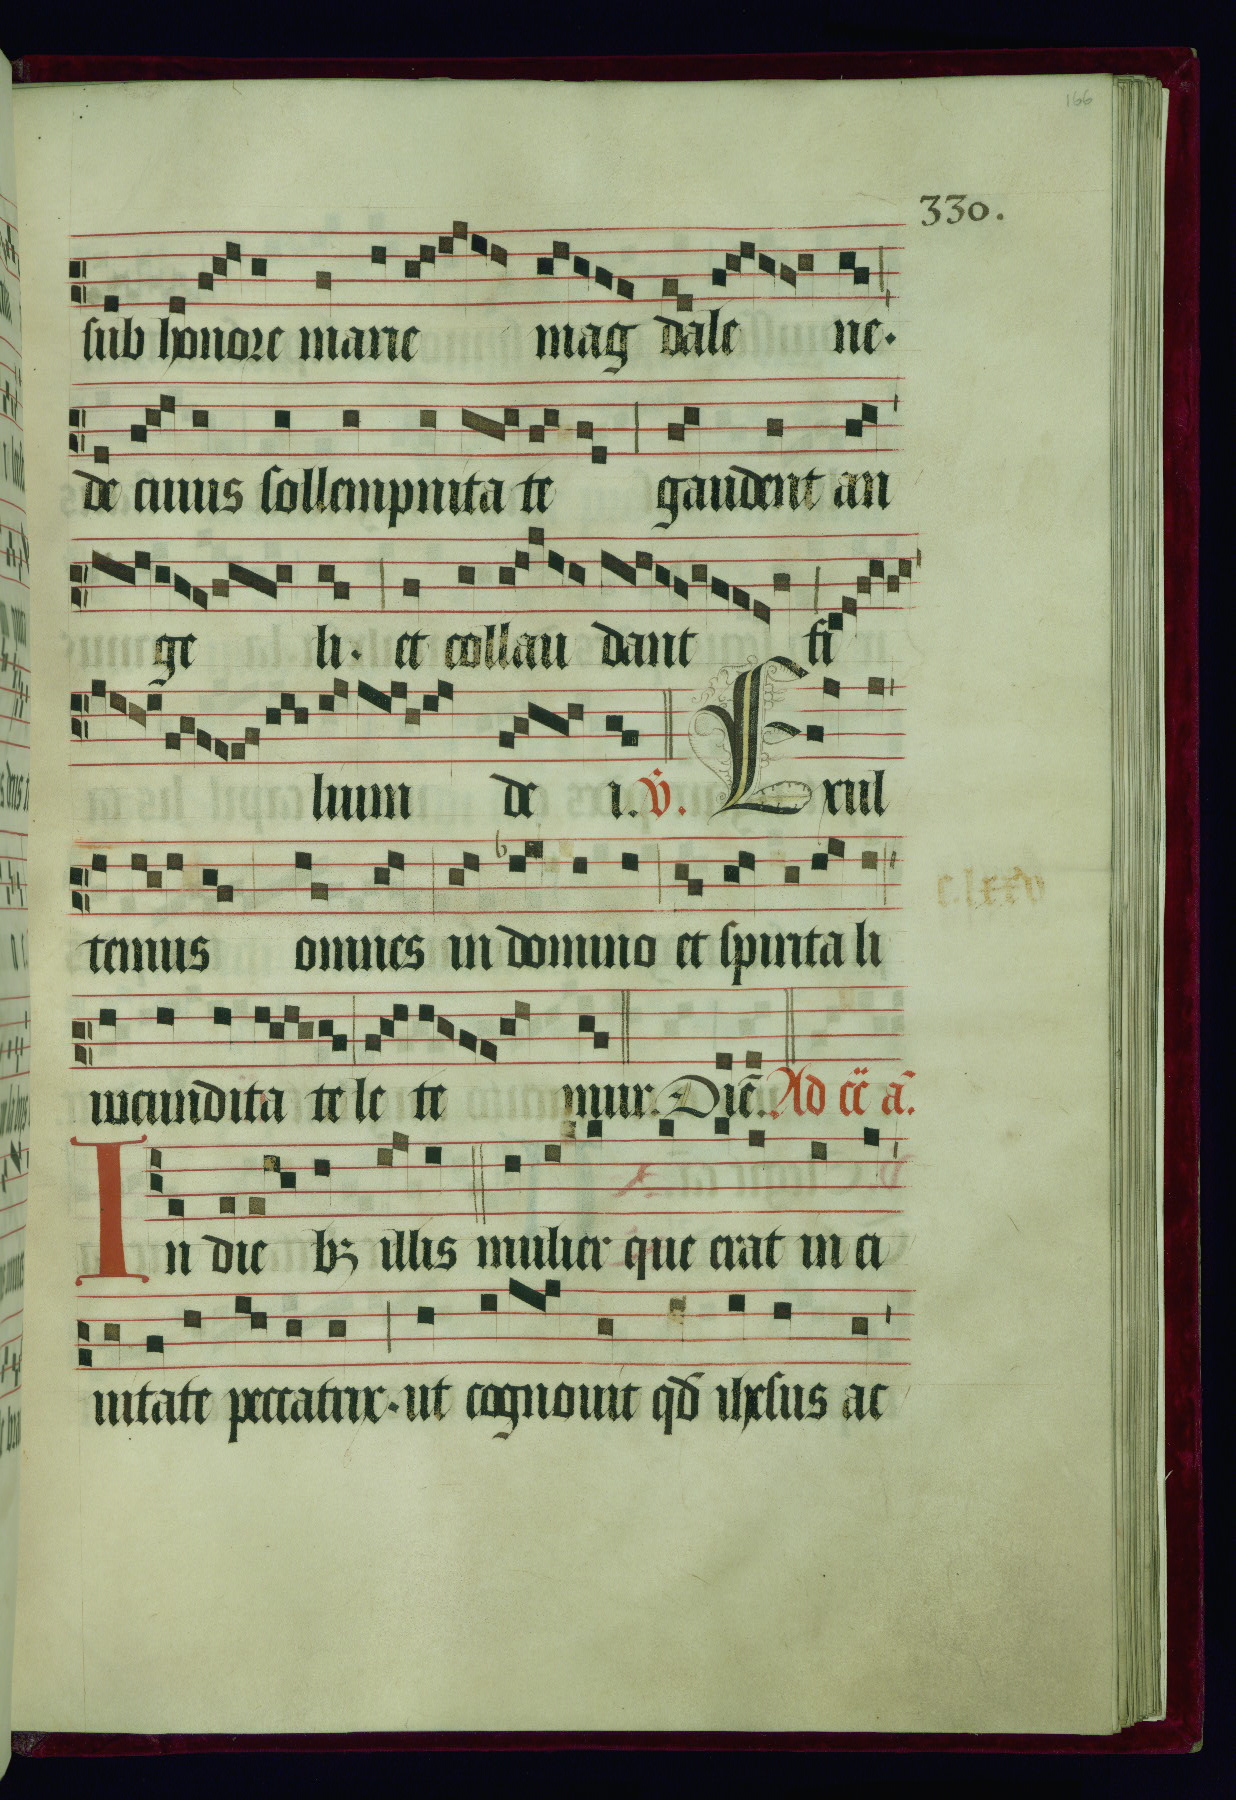 166
330.
sub honore marie mag dale ne.
de cuius sollempnita te gaudent an
ge li. et collau dant fi
lium de i. v̄. Exul
temus omnes in domino et spirita li
C.lxxv
iucundita te le te mur. Dic̄. Ad cc̄ a᷒.
In die bꝫ illis mulier que erat in ci
uitate peccatrix. ut cognouit qd̄ ihesus ac